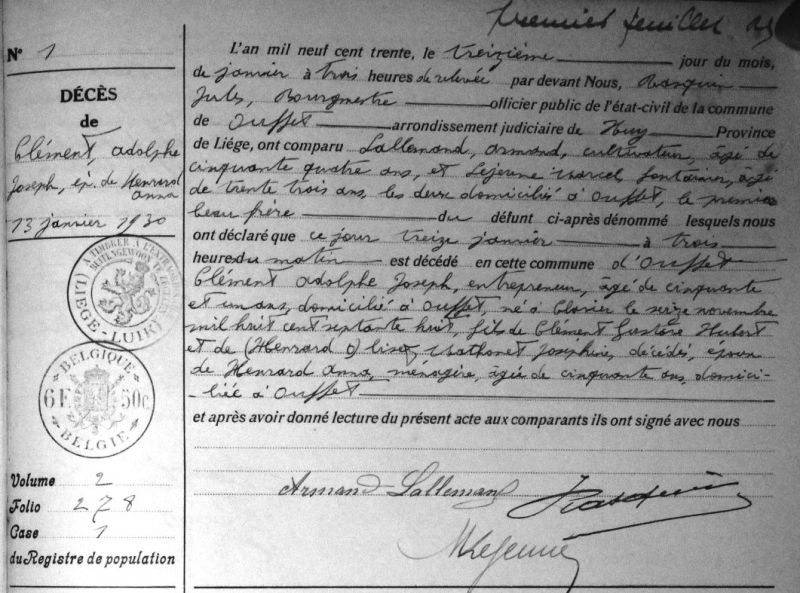 Premier feuillet
N° 1
DÉCÈS
de
Clément, Adolphe
Joseph, ép. de Henrard
Anna
13 janvier 1930
A TIMBRER A L'EXTRAORD
BUITENGEWOON TE ZEGELEN
(LIEGE-LUIK)
BELGIQUE
6F 50c
BELGIE
Volume 2
Folio 278
Case 1
du Registre de population
L'an mil neuf cent trente, le treizième jour du mois,
de janvier à trois heures de relevée par devant Nous, Rasquin
Jules, Bourgmestre officier public de l'état-civil de la commune
de Ouffet arrondissement judiciaire de Huy Province
de Liége, ont comparu Lallemand, Armand, cultivateur, âgé de
cinquante quatre ans, et Lejeune Marcel, fontainier, âgé
de trente trois ans, les deux domiciliés à Ouffet, le premier
beau frère du défunt ci-après dénommé lesquels nous
ont déclaré que ce jour treize janvier à trois
heures du matin est décédé en cette commune d'Ouffet
Clément Adolphe Joseph, entrepreneur, âgé de cinquante
et un ans, domicilié à Ouffet, né à Clavier le seize novembre
mil huit cent septante huit, fils de Clément Gustave Hubert
et de (Henrard O) lisez Mathonet Joséphine, décédés, époux
de Henrard Anna, ménagère, âgée de cinquante ans, domici-
-liée à Ouffet
et après avoir donné lecture du présent acte aux comparants ils ont signé avec nous
Armand Lallemand
Rasquin
M Lejeune